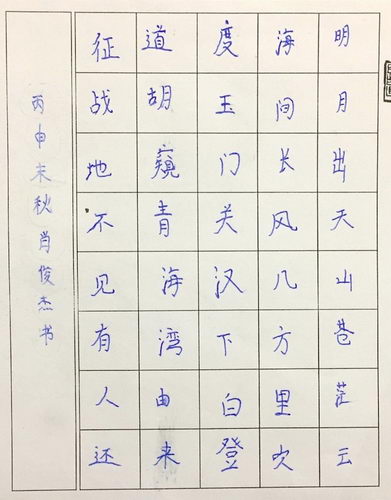 明月出天山苍茫云
海间长风几方里吹
度玉门关汉下白登
道胡窥青海湾由来
征战地不见有人还
丙申末秋肖俊杰书